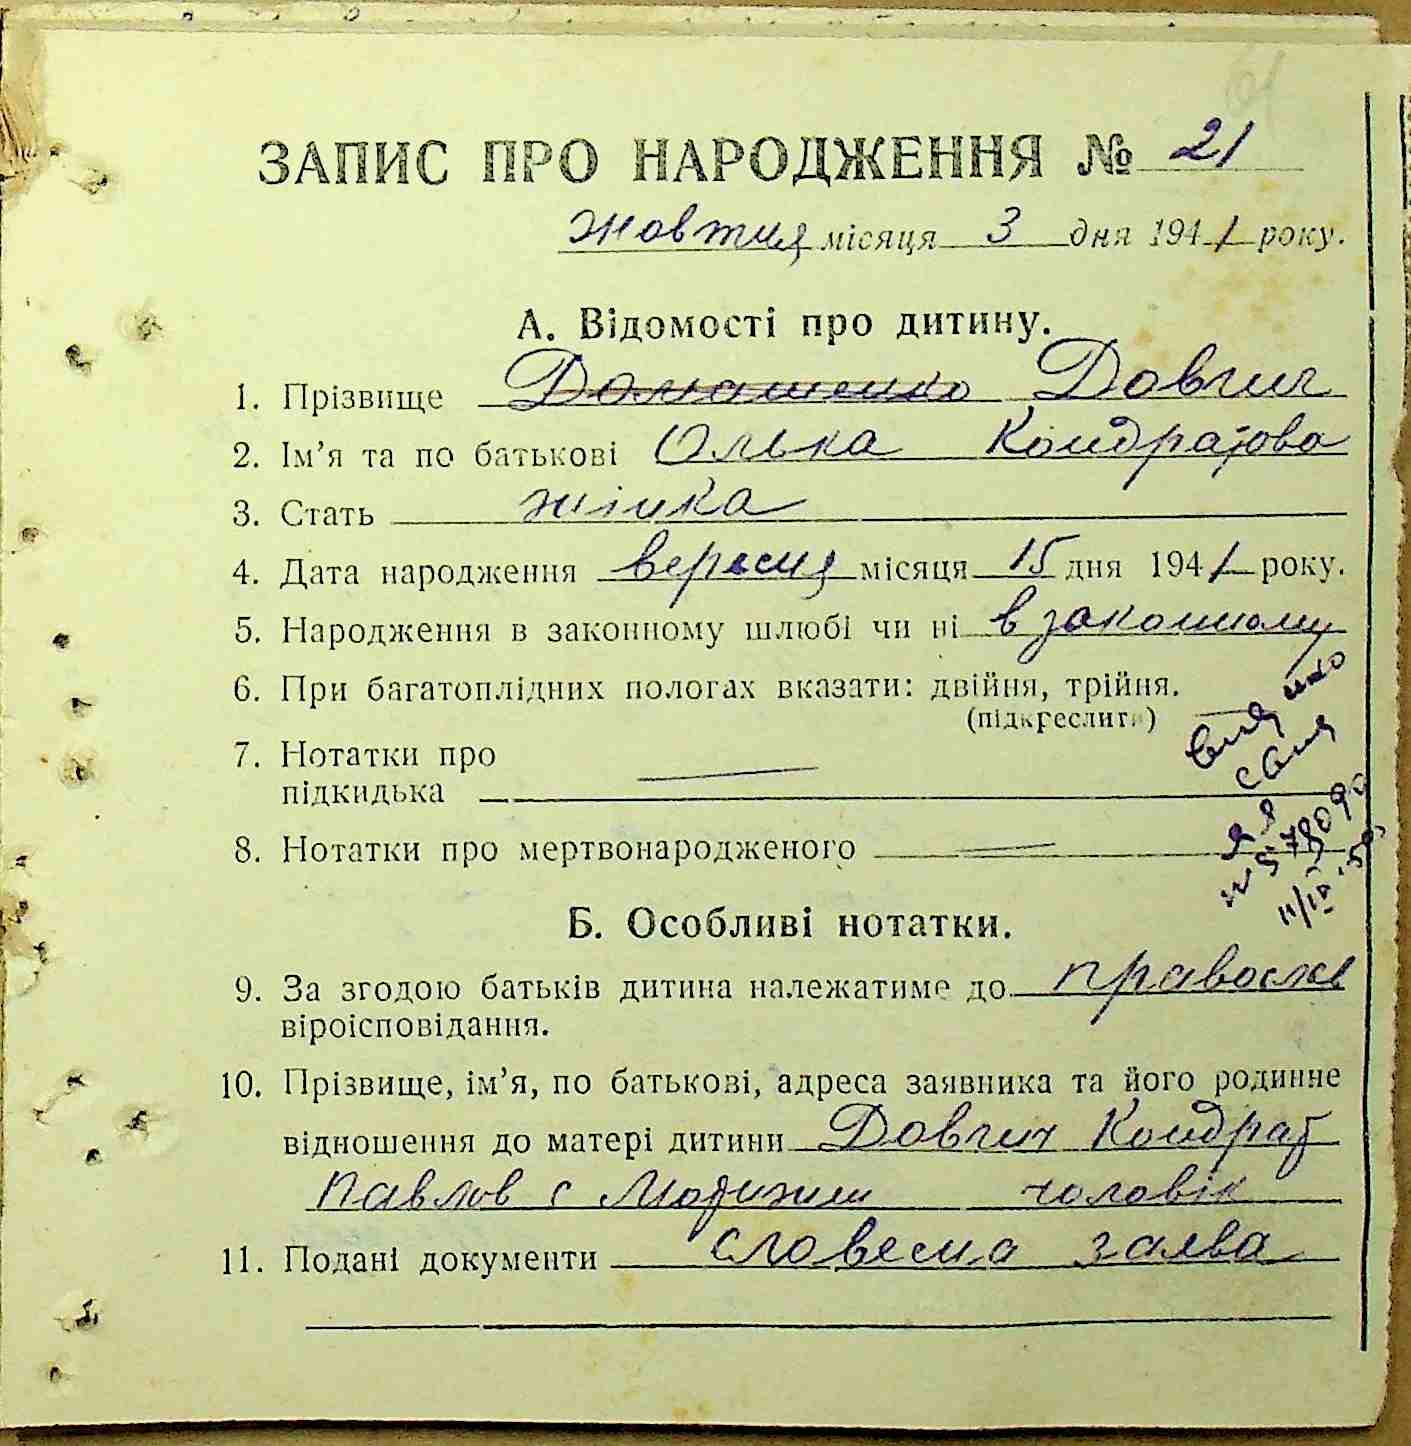 ЗАПИС ПРО НАРОДЖЕННЯ № 21
жовтня місяця 3 дня 1941 року.
А. Відомості про дитину.
1. Прізвище Домашенко Довгич
2. Ім’я та по батькові Олька Кондратова
3. Стать жінка
4. Дата народження вересня місяця 15 дня 1941 року.
5. Народження в законному шлюбі чи ні в законному
6. При багатоплідних пологах вказати: двійня, трійня.
(підкреслити)
7. Нотатки про
підкидька
8. Нотатки про мертвонародженого
Б. Особливі нотатки.
9. За згодою батьків дитина належатиме до правосл
віроісповідання.
10. Прізвище, ім’я, по батькові, адреса заявника та його родинне
відношення до матері дитини Довгич Кондрат
Павлов с чоловік
11. Подані документи словесна заява